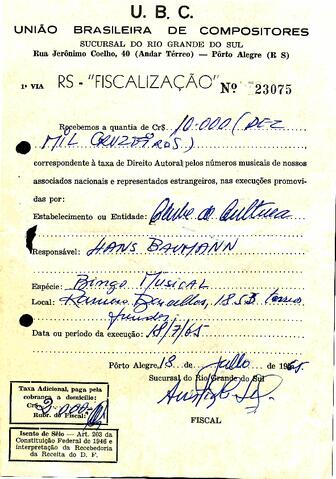 U. B. C.
UNIÃO BRASILEIRA DE COMPOSITORES
SUCURSAL DO RIO GRANDE DO SUL
Rua Jerônimo Coelho, 40 (Andar Térreo) — Pôrto Alegre (R S)
1ª VIA RS - "FISCALIZAÇÃO" Nº 23075
Recebemos a quantia de Cr$ 10.000 (DEZ
MIL CRUZEIROS)
correspondente à taxa de Direito Autoral pelos números musicais de nossos
associados nacionais e representados estrangeiros, nas execuções promovi-
das por:
Estabelecimento ou Entidade: Clube de Cultura
Responsável: HANS BAUMANN
Espécie: Bingo Musical
Local: Ramiro Barcellos, 1853
fundos
Data ou período da execução: 18/7/65
Pôrto Alegre, 18 de Julho de 1965
Sucursal do Rio Grande do Sul
FISCAL
Taxa Adicional, paga pela
cobrança a domicílio:
Cr$ 2.000
Rubr. do Fiscal:
Isento de Sêlo — Art. 203 da
Constituição Federal de 1946 e
interpretação da Recebedoria
da Receita do D. F.